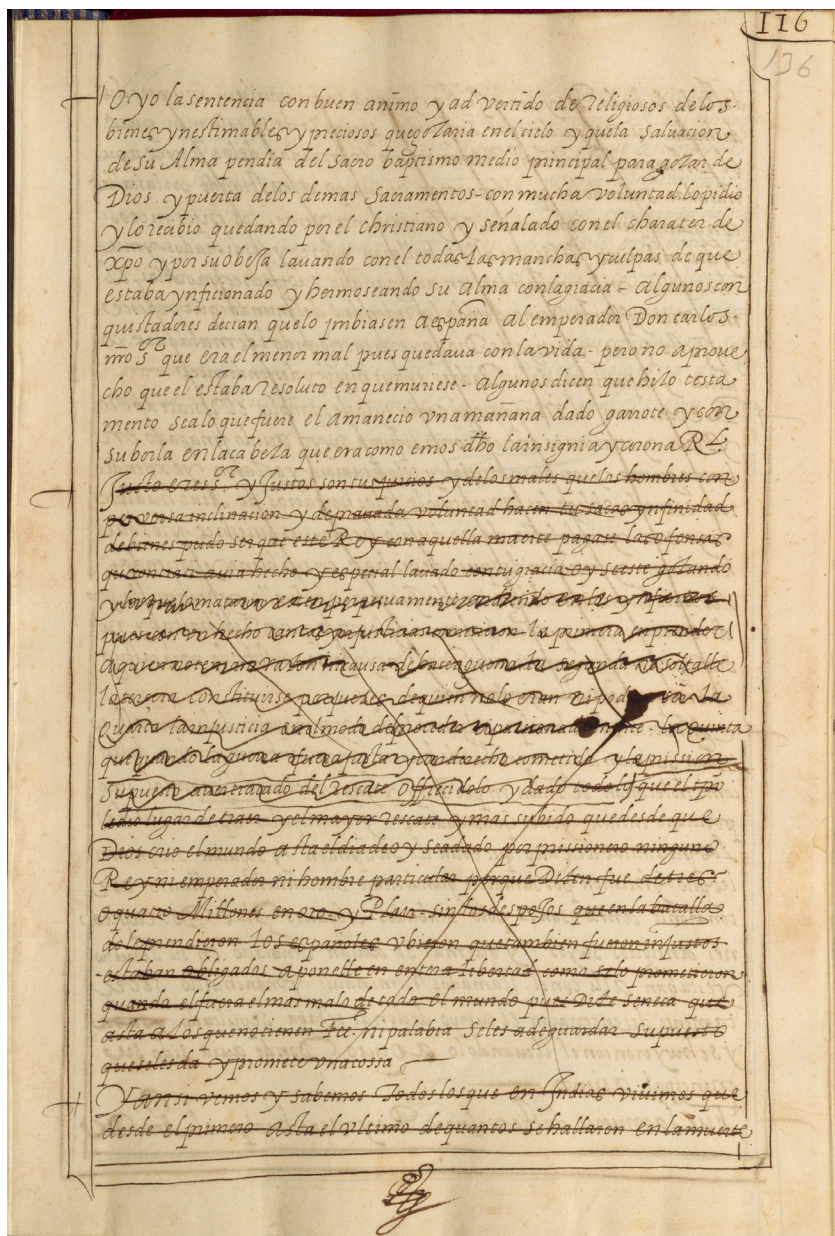 116
136
Oyo la sentencia con buen animo y advertido de Religiosos de los
bienes ynestimables y preciosos que goçaria en el cielo y que la salvacion
de su Alma pendia del sacro baptismo medio principal para goçar de
Dios y puerta de los demas Sacramentos - con mucha voluntad lo pidio
y lo recibio quedando por el christiano y señalado con el charater de
xpo y por su obeja lauando con el todas las manchas y culpas de que
estaba ynficionado y hermoseando su alma con la gracia - algunos con
quistadores decian que lo ymbiasen a españa al emperador Don carlos
nro sor que era el menor mal pues quedaua con la vida - pero no aproue
cho que el estaba resoluto en que muriese - algunos dicen que hiço testa
mento sea lo que fuere el amanecio vna mañana dado garrote y con
su borla en la cabeça que era como emos dho la insignia y corona Rl.
Justo eres sor y justos son tus juicios y de los males que los hombres con
perversa inclinacion y deprauada voluntad hacen tu sacas ynfinidad
de bienes pudo ser que este Rey con aquella muerte pagase las ofensas
que contra ti auia hecho y especial lauado con tu gracia oy te este goçando
y los que lo mataron esten perpetuamente ardiendo en los ynfiernos
hecho tantas ynjusticias la primera en prender
a quien no tenian raçon ni causa de hacer guerra la segunda no soltalle
la tercera constituirse por jueces de quien no lo eran ni podian la
quarta la injusticia en el modo de proceder la quinta
que quando la guerra fuera justa y con derecho cometida y la prission
supuesto a tratado del rescate offrecidolo y dado todo lo que el tpo
le dio lugar de traer y el mayor rescate y mas subido que desde que
Dios crio el mundo asta el dia de oy se a dado por prissionero ninguno
Rey ni emperador ni hombre particular porque Diçen fue de tres
o quatro Millones en oro y Plata sin los despojos que en la batalla
do le prendieron los españoles vbieron que tambien fueron injustos
estaban obligados a ponelle en entera libertad como se lo prometieron
quando el fuera el mas malo de todo el mundo pues Diçe seneca que
asta a los que no tienen Fee ni palabra se les a de guardar supuesto
que se les da y promete vna cossa
Y ansi vemos y sabemos Todos los que en Indias viuimos que
desde el primero asta el vltimo de quantos se hallaron en la muerte